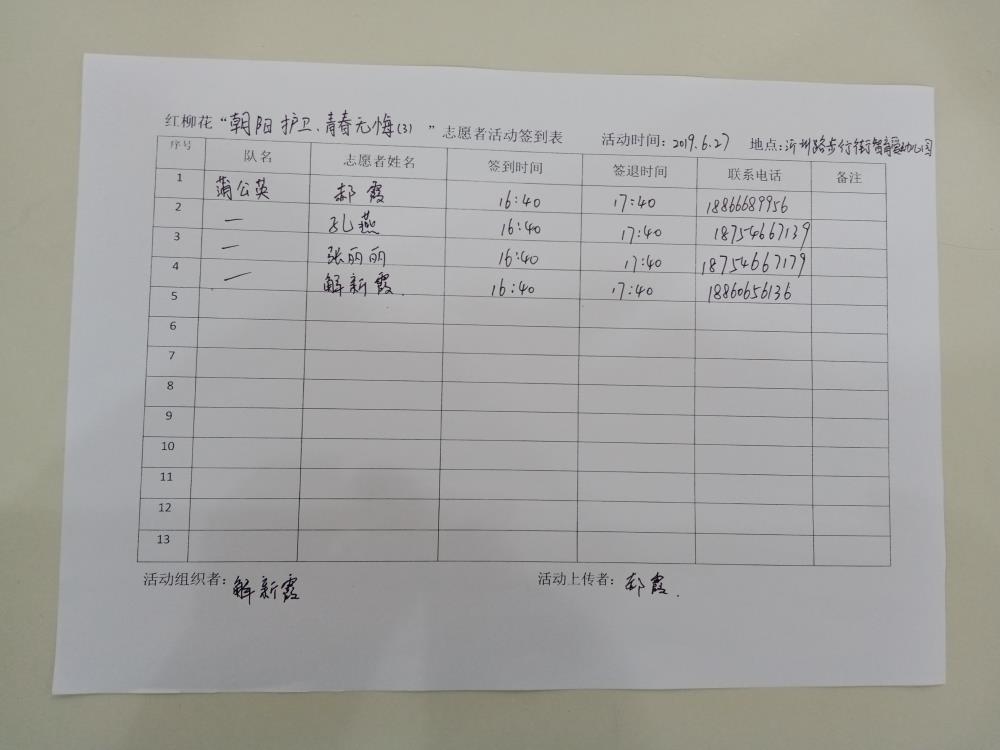 红柳花“朝阳护卫、青春无悔(3)”志愿者活动签到表 活动时间：2019.6.27 地点：沂州路步行街智育爱幼儿园
序号 队名 志愿者姓名 签到时间 签退时间 联系电话 备注
1 蒲公英 郝霞 16:40 17:40 18866689956
2 一 孔燕 16:40 17:40 18754667139
3 一 张丽丽 16:40 17:40 18754667179
4 一 解新霞. 16:40 17:40 18860656136
5
6
7
8
9
10
11
12
13
活动组织者：解新霞 活动上传者：郝霞.